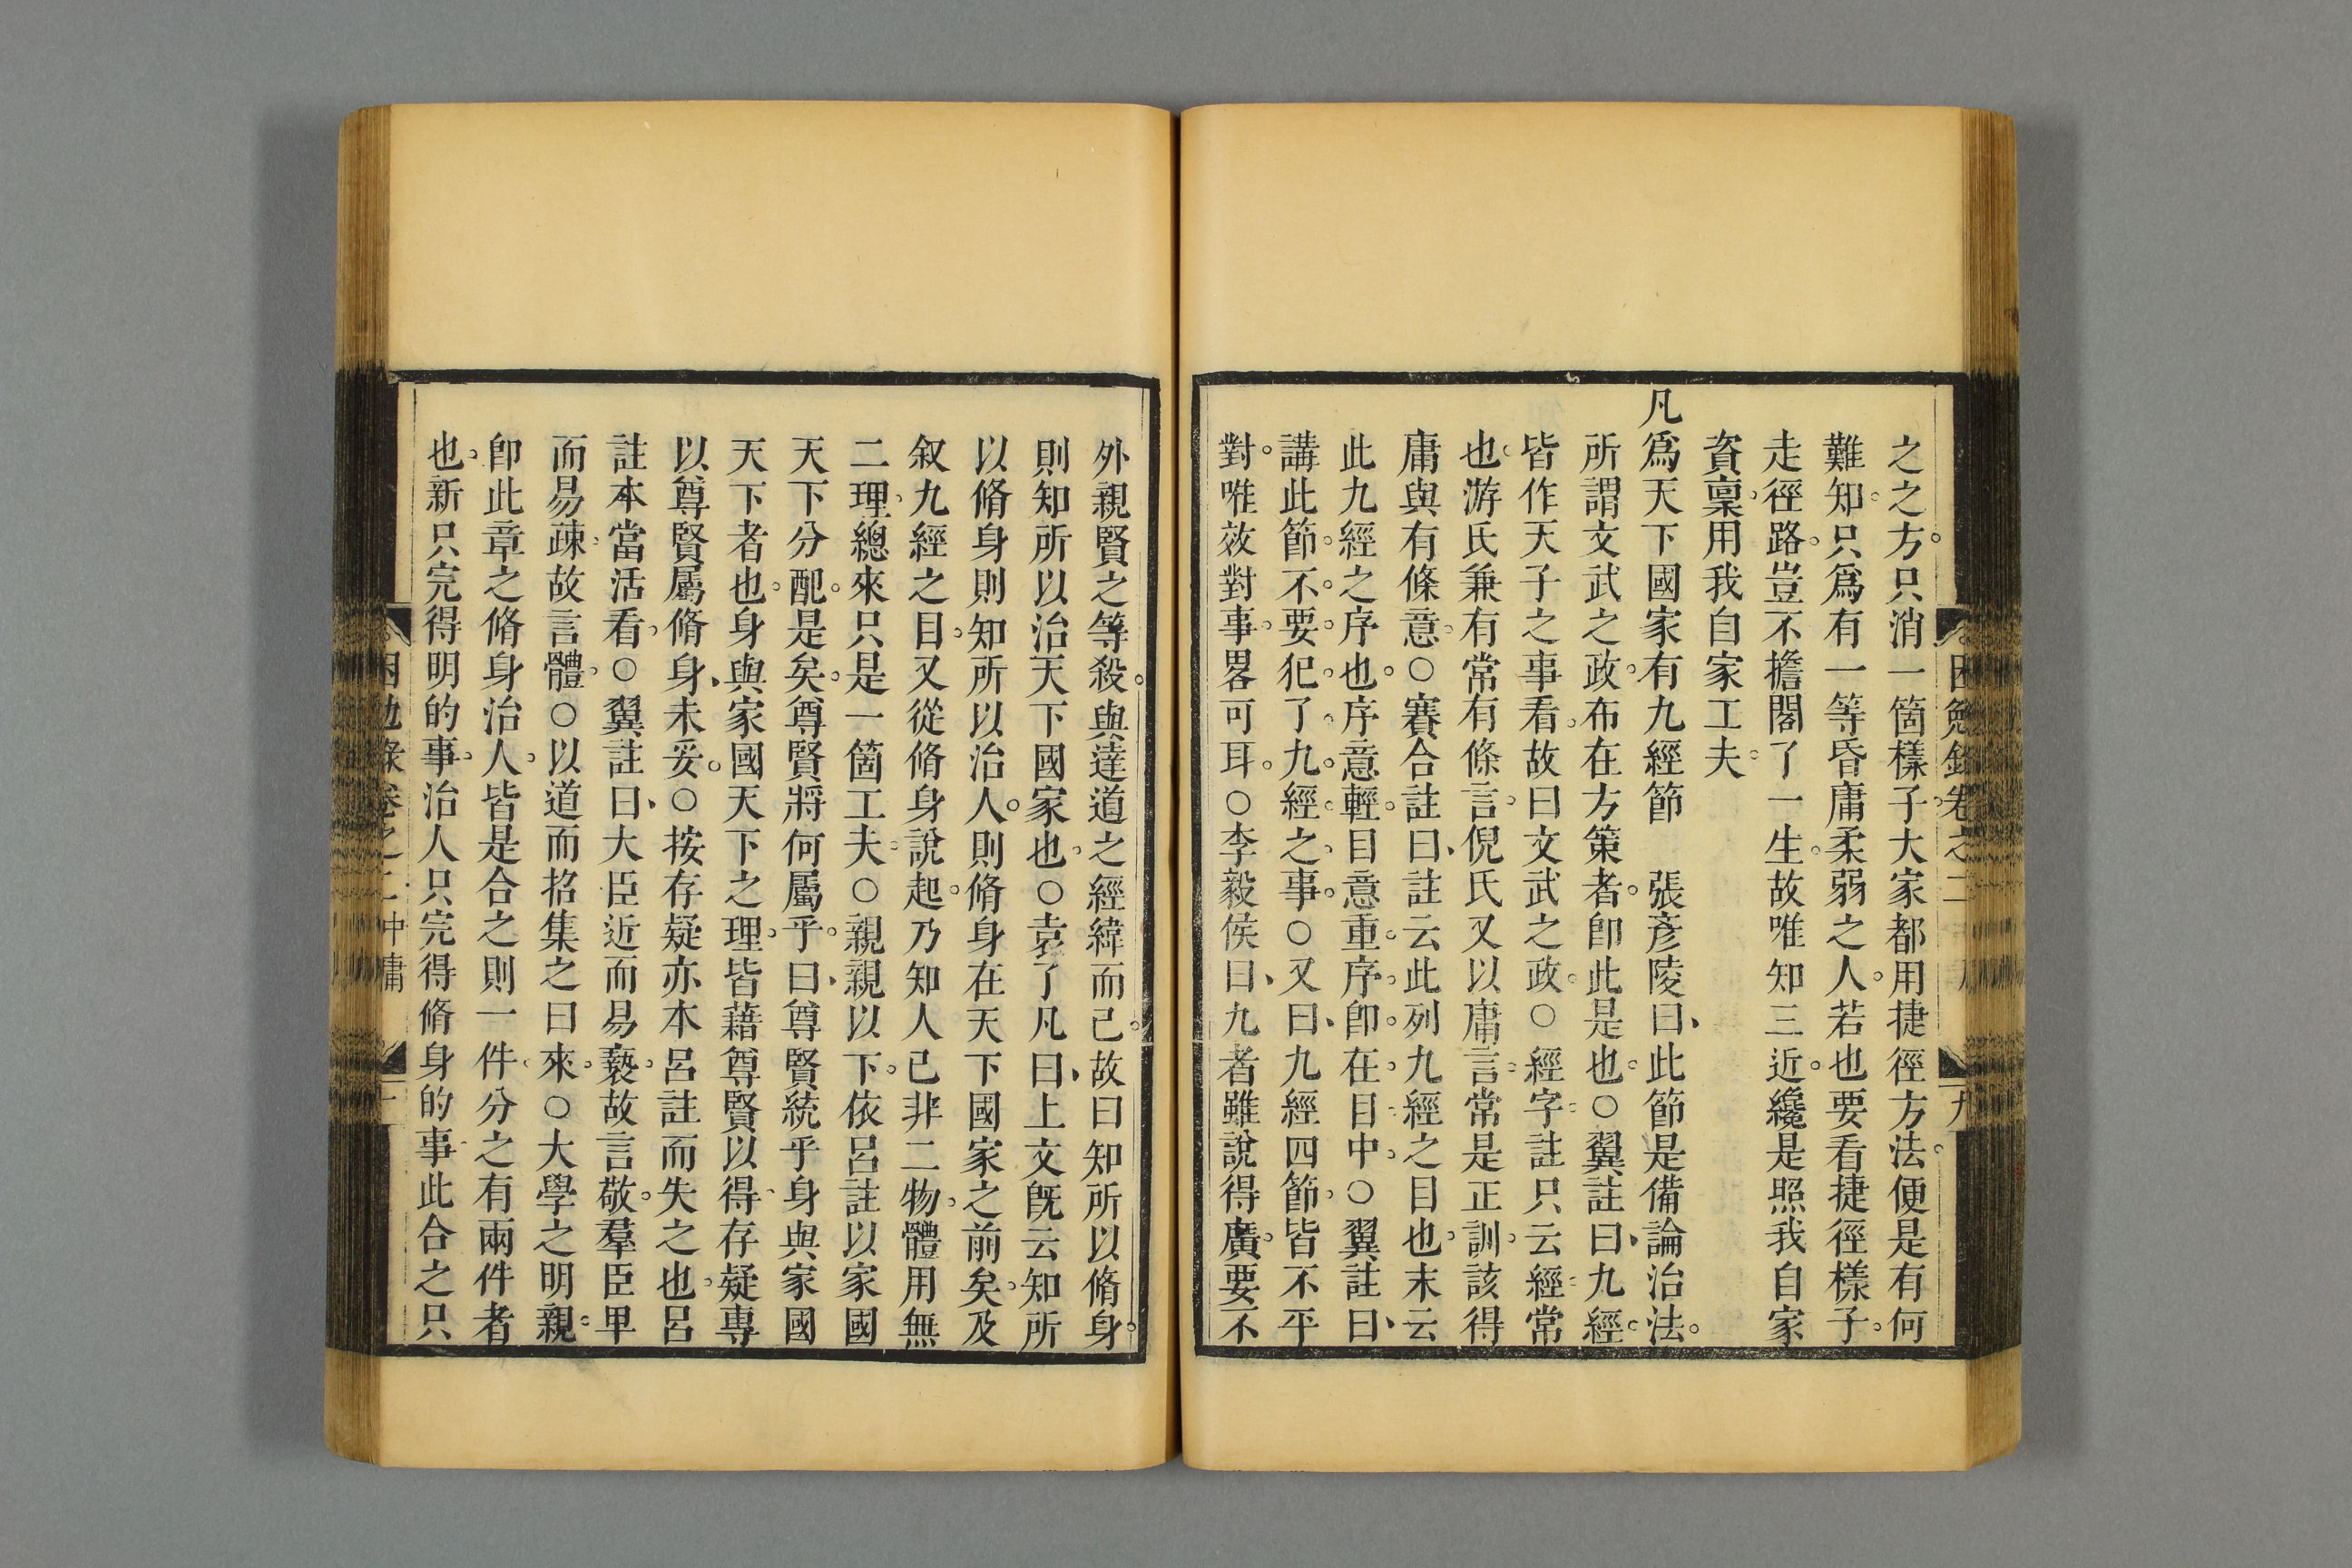 之之方。只消一箇樣子。大家都用捷徑方法。便是有何
難知。只爲有一等昏庸柔弱之人。若也要看捷徑樣子。
走徑路。豈不擔閣了一生。故唯知三近。纔是照我自家
資稟。用我自家工夫。
凡爲天下國家有九經節　張彥陵曰、此節是備論治法。
所謂文武之政。布在方策者。卽此是也。○翼註曰、九經。
皆作天子之事看。故曰文武之政。○經字註只云經常
也。游氏兼有常有條言。倪氏又以庸言常是正訓。該得
庸與有條意。○賽合註曰、註云此列九經之目也。末云
此九經之序也。序意輕。目意重。序卽在目中。○翼註曰、
講此節。不要犯了九經之事。○又曰、九經四節。皆不平
對。唯效對事。畧可耳。○李毅侯曰、九者雖說得廣。要不
外親賢之等殺。與達道之經緯而已。故曰知所以脩身。
則知所以治天下國家也。○袁了凡曰、上文旣云知所
以脩身則知所以治人。則脩身在天下國家之前矣。及
叙九經之目。又從脩身說起。乃知人己非二物。體用無
二理。總來只是一箇工夫。○親親以下。依呂註以家國
天下分配。是矣。尊賢將何屬乎。曰、尊賢統乎身與家國
天下者也。身與家國天下之理。皆藉尊賢以得。存疑專
以尊賢屬脩身、未妥。○按存疑亦本呂註而失之也。呂
註本當活看。○翼註曰、大臣近而易褻。故言敬。羣臣卑
而易疎。故言體。○以道而招集之曰來。○大學之明親。
卽此章之脩身治人。皆是合之則一件。分之有兩件者
也。新只完得明的事。治人只完得脩身的事。此合之只
困勉錄卷之二中庸